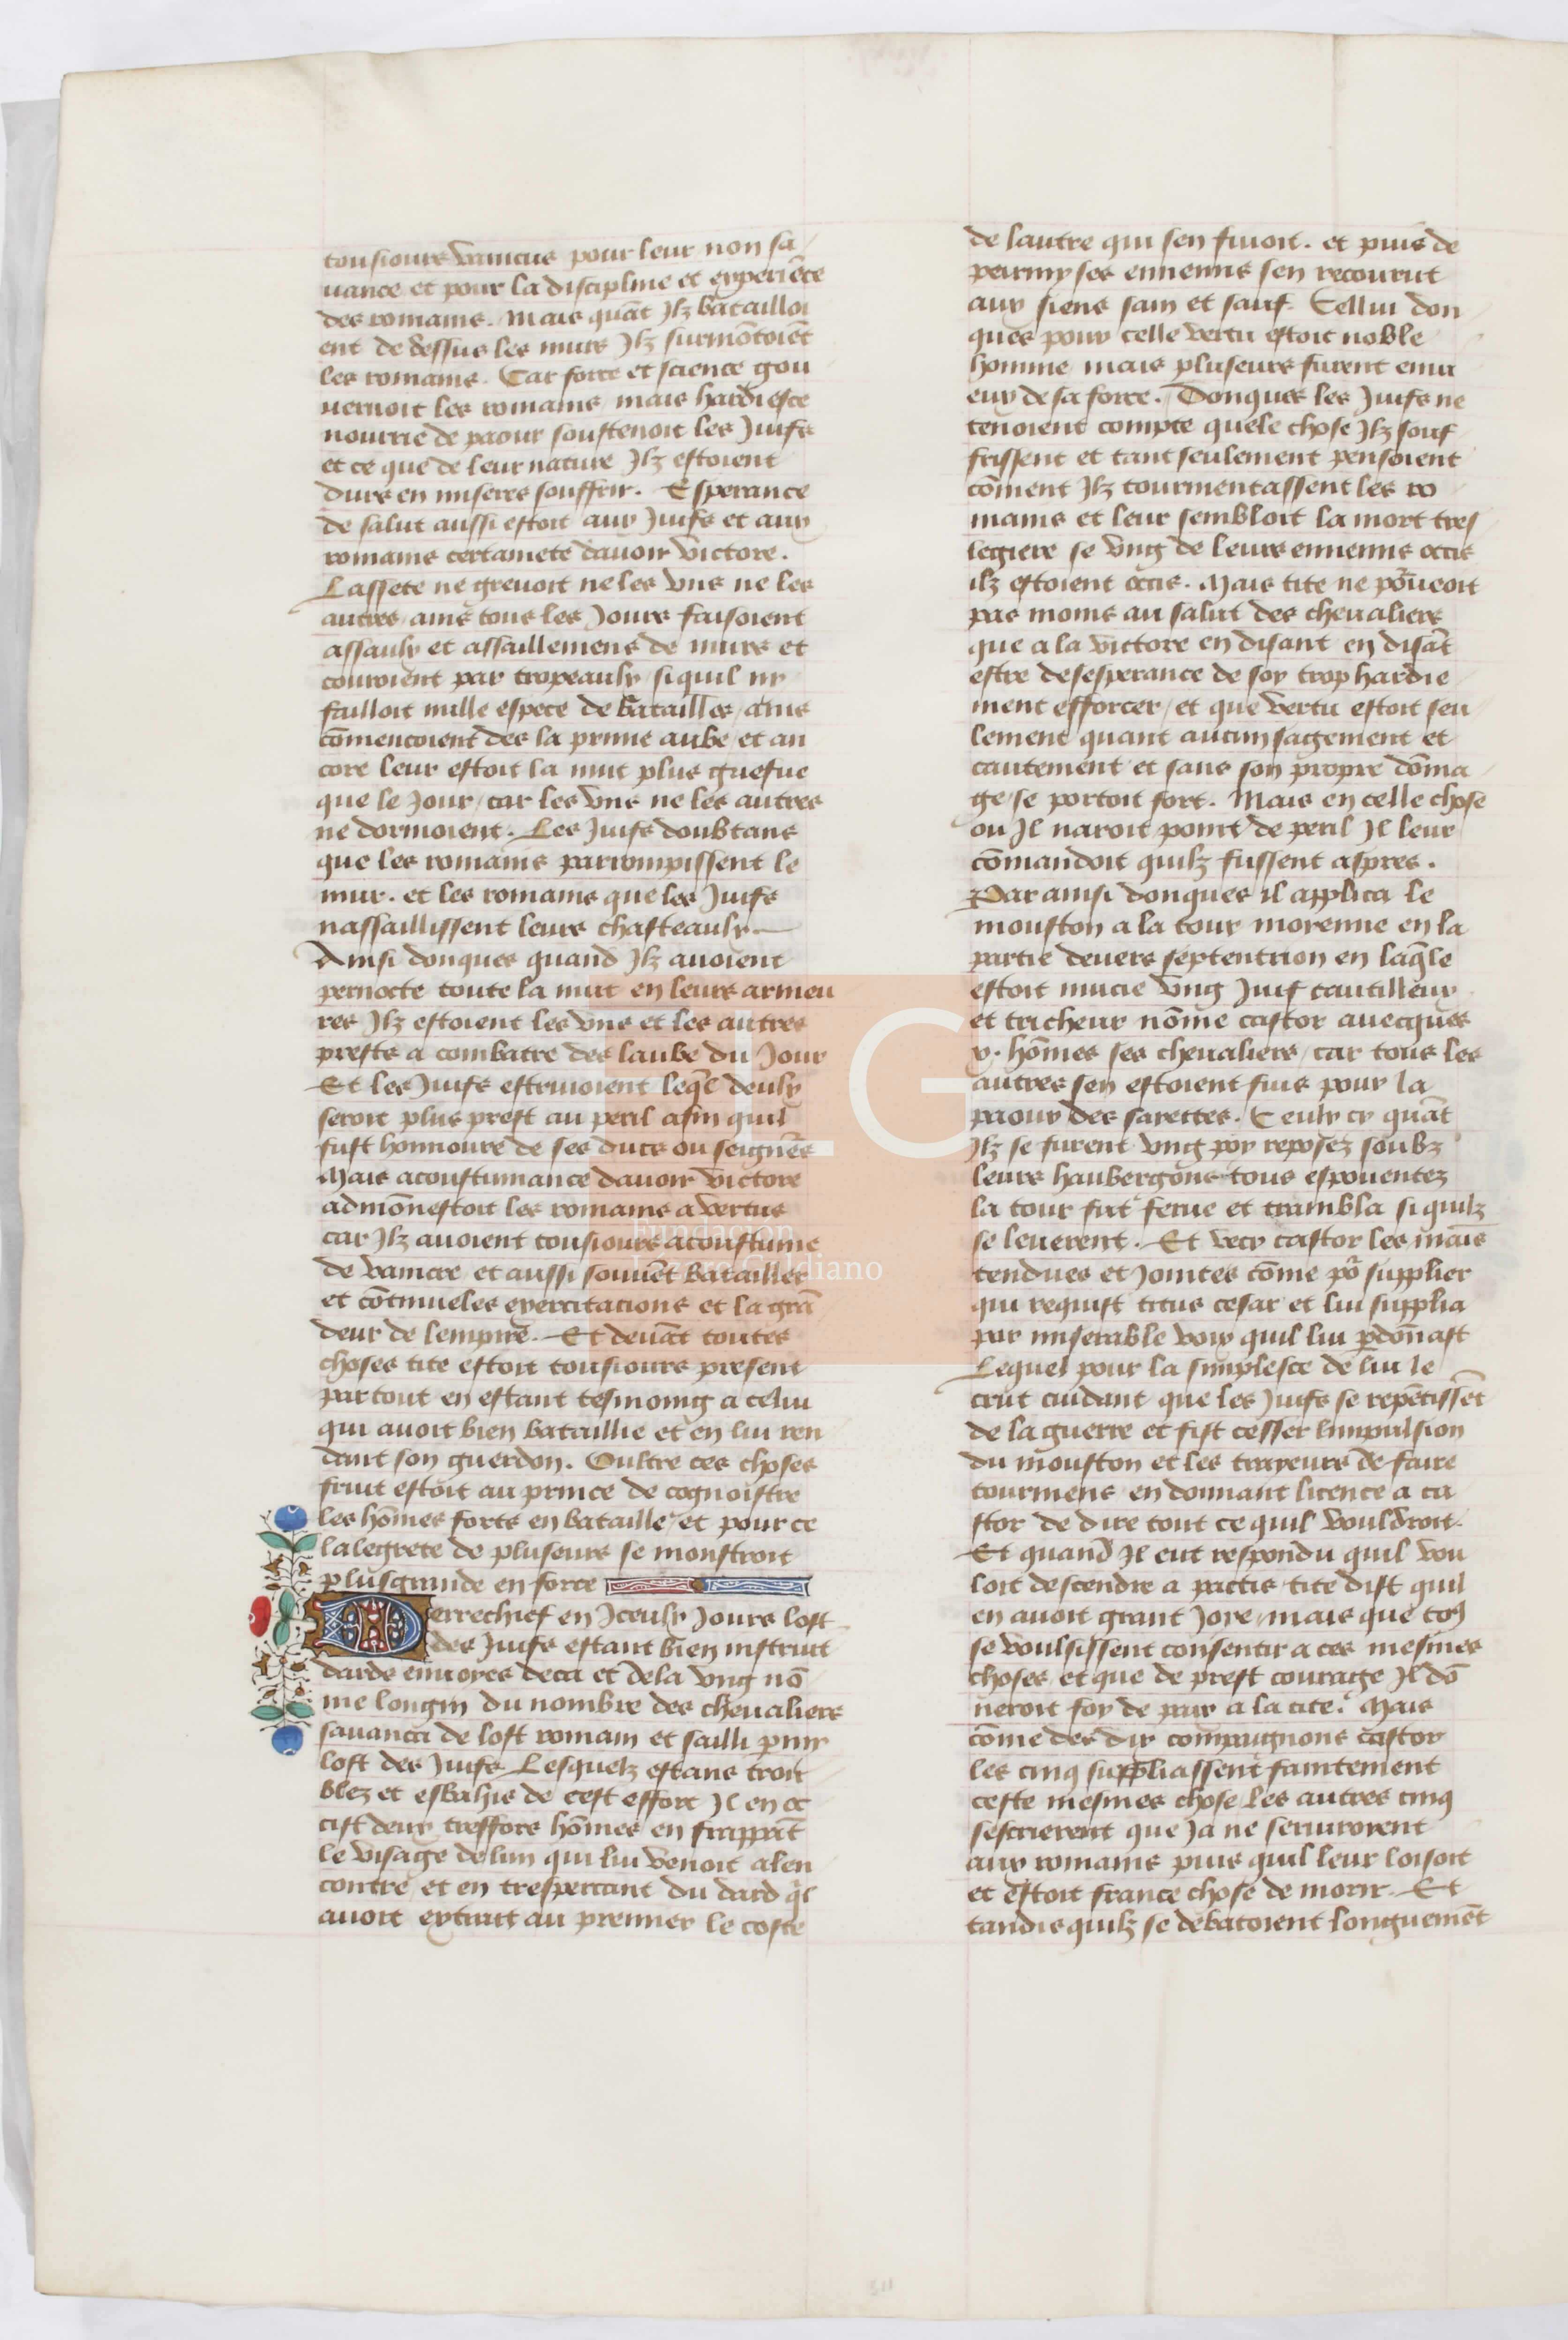 tousiours vaincus pour leur non sa
uance et pour la discipline et experiēce
des romains. Mais quāt Ilz batailloi
ent de dessus les murs Ilz surmōtoiēt
les romains. Car force et science gou
uernoit les romains mais hardiesce
nourrie de paour soustenoit les Juifs
et ce que de leur nature Ilz estoient
durs en miseres souffrir. Esperance
de salut aussi estoit aux Juifs et aux
romains certainete dauoir victore.
Lassete ne greuoit ne les vns ne les
autres ains tous les Jours faisoient
assaulx et assaillemens de murs et
couroient par tropeaulx si quil ny
failloit nulle espece de batailles / ains
cōmencoient des la prime aube / et an
core leur estoit la nuit plus griefue
que le Jour / car les vns ne les autres
ne dormoient. Les Juifs doubtans
que les romains parrompissent le
mur. et les romains que les Juifs
nassaillissent leurs chasteaulx
Ainsi donques quand Ilz auoient
pernocte toute la nuit en leurs armeu
res Ilz estoient les vns et les autres
prests a combatre des laube du Jour
Et les Juifs estriuoient leql̄ deulx
seroit plus prest au peril afin quil
fust honnoure de ses ducs ou seignēs
Mais acoustumance dauoir victore
admōnestoit les romains a vertus
car Ilz auoient tousiours acoustume
de vaincre et aussi souuēt batailles
et cōtinueles exercitacions et la grā
deur de lempire. Et deuāt toutes
choses tite estoit tousiours present
par tout en estant tesmoing a celui
qui auoit bien bataillie et en lui ren
dant son guerdon. Oultre ces choses
fruit estoit au prince de cognoistre
les hōmes forts en bataille / et pour ce
lalegrete de pluseurs se monstroit
plusgrande en force
Derrechief en Iceulx Jours lost
des Juifs estant bien instruit
dards enuoyes deca et dela vng nō
me longin du nombre des cheualiers
sauanca de lost romain et sailli p̄my
lost des Juifs. Lesquelz estans trou
blez et esbahis de cest effort Il en oc
cist deux tresfors hōmes en frappāt
le visage de lun qui lui venoit alen
contre et en tresperçant du dard q̄l
auoit extrait au premier le coste
de lautre qui sen fuioit. et puis de
parmy ses ennemis sen recourut
aux siens sain et sauf. Cellui don
ques pour celle vertu estoit noble
homme mais pluseurs furent enui
eux de sa force. Donques les Juifs ne
tenoient compte quele chose Ilz souf
frissent et tant seulement pensoient
cōment Ilz tourmentassent les ro
mains et leur sembloit la mort tres
legiere se vng de leurs ennemis occis
ilz estoient occis. Mais tite ne po͛ueoit
pas moins au salut des cheualiers
que a la victore en disant en disāt
estre desesperance de soy trop hardie
ment efforcer / et que vertu estoit seu
lement quant aucun sagement et
cautement et sans son propre dōma
ge / se portoit fort. Mais en celle chose
ou Il naroit point de peril Il leur
cōmandoit quilz fussent aspres.
Par ainsi donques il applica le
mouston a la tour morenne en la
partie deuers septentrion en laq̄le
estoit mucie vng Juif cautilleux
et tricheur nōme castor auecques
x. hōmes ses cheualiers / car tous les
autres sen estoient fuis pour la
paour des saiettes. Ceulx cy quāt
Ilz se furent vng poy reposez soubz
leurs haubergōns tous espouentez
la tour fut ferue et trambla si quilz
se leuerent. Et vecy castor les mais
tendues et Jointes cōme po͛ supplier
qui requist titus cesar et lui supplia
par miserable voix quil lui p̄donnast
Lequel pour la simplesce de lui le
crut cuidant que les Juifs se repētissēt
de la guerre et fist cesser limpulsion
du mouston et les trayeurs de faire
tourmens en donnant licence a ca
stor de dire tout ce quil vouldroit.
Et quand Il eut respondu quil vou
loit descendre a pactis tite dist quil
en auoit grant Joye / mais que to9
se voulsissent consentir a ces mesmes
choses et que de prest courage Il dō
neroit foy de paix a la cite. Mais
cōme des dix compaignons castor
les cinq suppliassent faintement
ceste mesmes chose les autres cinq
sescrierent que Ja ne seruiroyent
aux romains puis quil leur loisoit
et estoit france chose de morir. Et
tandis quilz se debatoient longuemēt
LG
Fundación
Lázaro Galdiano